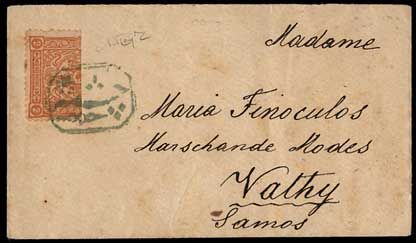 Madame
Maria Finoculos
Marschande Modes
Vathy
Samos